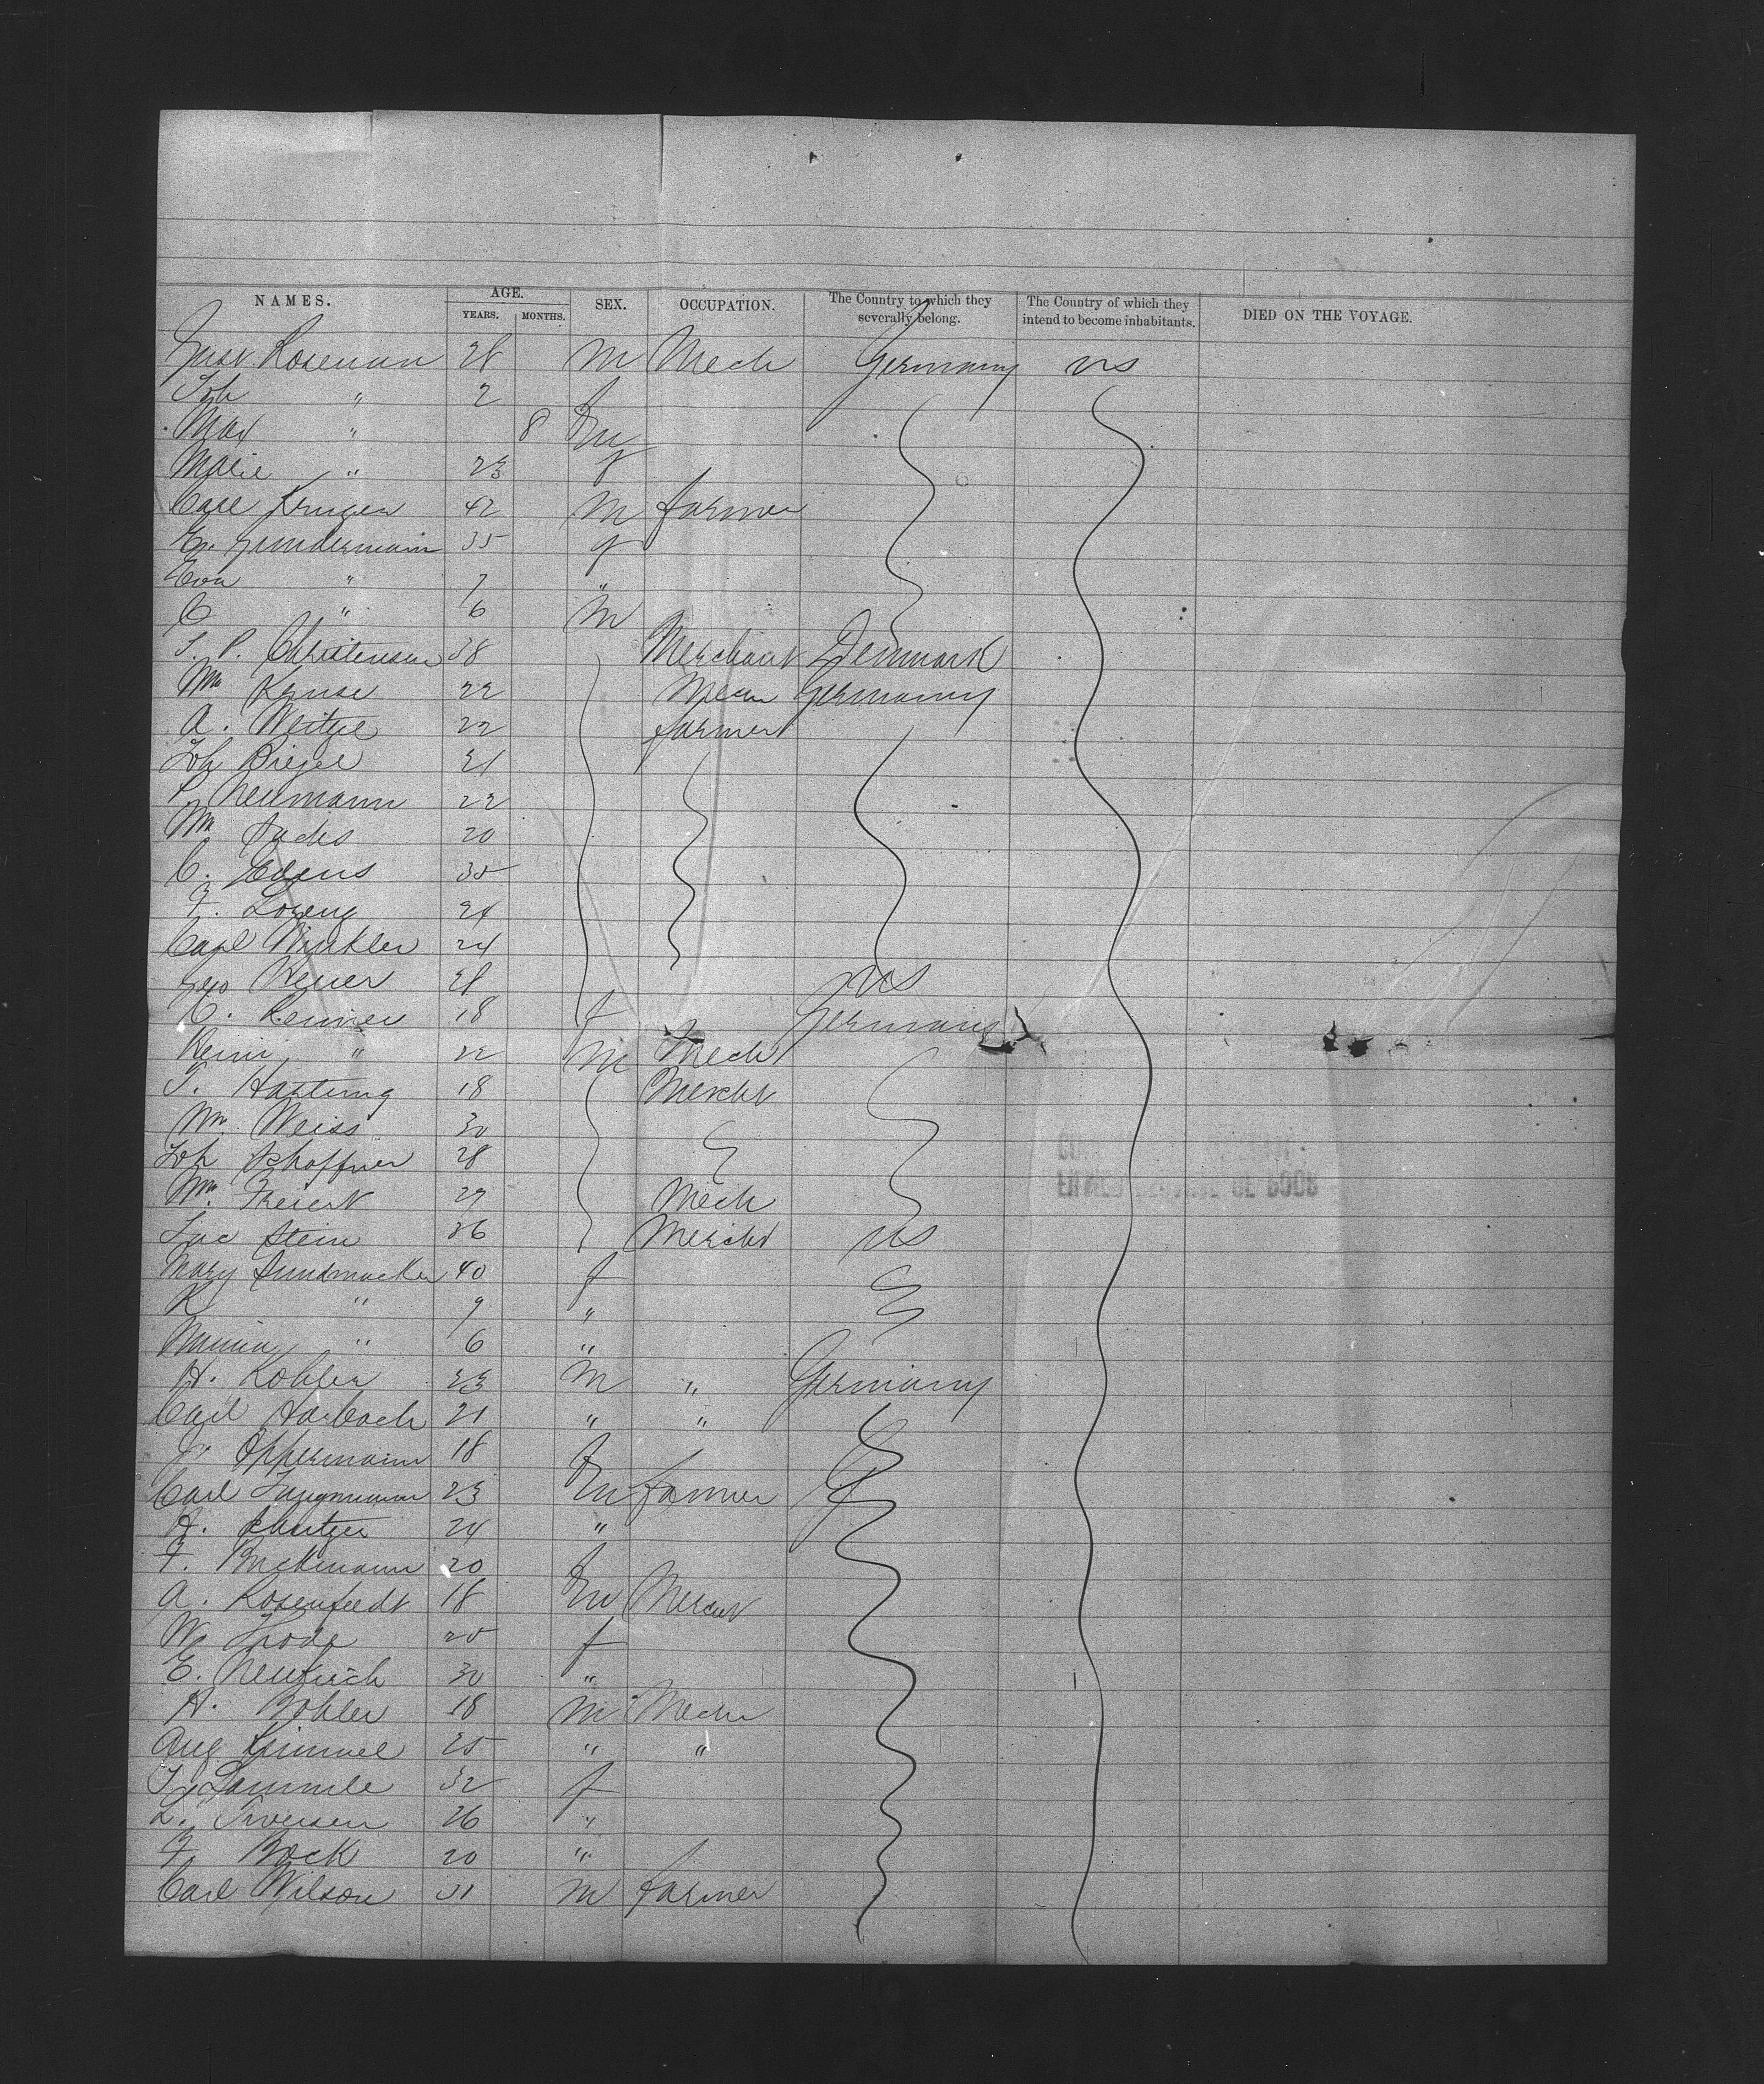 NAMES. AGE. YEARS. MONTHS. SEX. OCCUPATION. The Country to which they severally belong. The Country of which they intend to become inhabitants. DIED ON THE VOYAGE.
Gust. Roseman 28 M Mech Germany US
Joh " 2 f
Max " 8 m
Marie " 23 f
Carl Kruger 42 M farmer
35 f
Eva " 7 "
C " 6 M
P. Christensen 38 Merchant Denmark
Wm Kruse 22 Germany
A. Weitzel 22 farmer
Joh Riegel 21
P Neumann 22
Wm 20
C. Edens 35
F. Lorenz 24
Carl Winkler 24
Geo 28 US
C. Renner 18 f Germany
" 22 M Mech
Hartung 18 Mercht
Wm Weiss 30
Joh Schaffner 28
Wm 29 Mech
Stein 36 Mercht US
Mary Sundmacker 40 f
K " 9 "
" 6 "
H. Kohler 23 M " Germany
Carl Harbach 21 " "
Oppermann 18 f
Carl 23 m farmer
H. 24 "
F. 20 f
A. Rosenfeldt 18 m Mercht
W. Thode 25 f
E. Neukirch 30 "
H. Bohler 18 M Mech
Aug Kimmel 25 " "
32 f
L. Iversen 26 "
F. Bock 20 "
Carl Wilson 31 M farmer